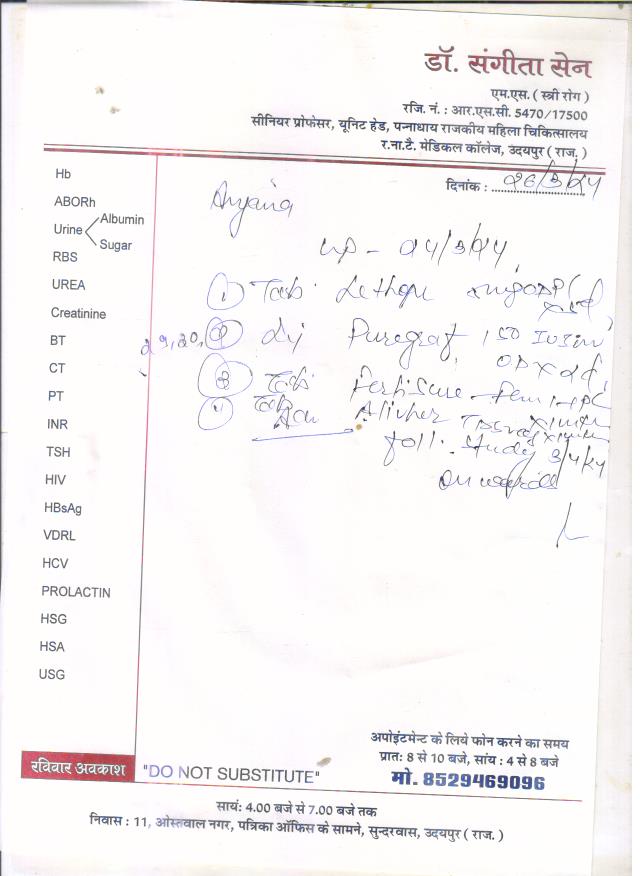 डॉ. संगीता सेन
एम.एस. ( स्त्री रोग )
रजि. नं. : आर.एस.सी. 5470/17500
सीनियर प्रोफेसर, यूनिट हेड, पन्नाधाय राजकीय महिला चिकित्सालय
र.ना.टै. मेडिकल कॉलेज, उदयपुर ( राज. )
दिनांक : 26/3/24
Hb
ABORh
Urine Albumin
Sugar
RBS
UREA
Creatinine
BT
CT
PT
INR
TSH
HIV
HBsAg
VDRL
HCV
PROLACTIN
HSG
HSA
USG
24/3/24
1 Tab.
29, 30, 2 Puregraf 150
3 Tab. Fertisure
4 Tab
Study 3/4/24
अपोइंटमेन्ट के लिये फोन करने का समय
प्रात: 8 से 10 बजे, सांय : 4 से 8 बजे
मो. 8529469096
रविवार अवकाश "DO NOT SUBSTITUTE"
सायं: 4.00 बजे से 7.00 बजे तक
निवास : 11, ओस्तवाल नगर, पत्रिका ऑफिस के सामने, सुन्दरवास, उदयपुर ( राज. )